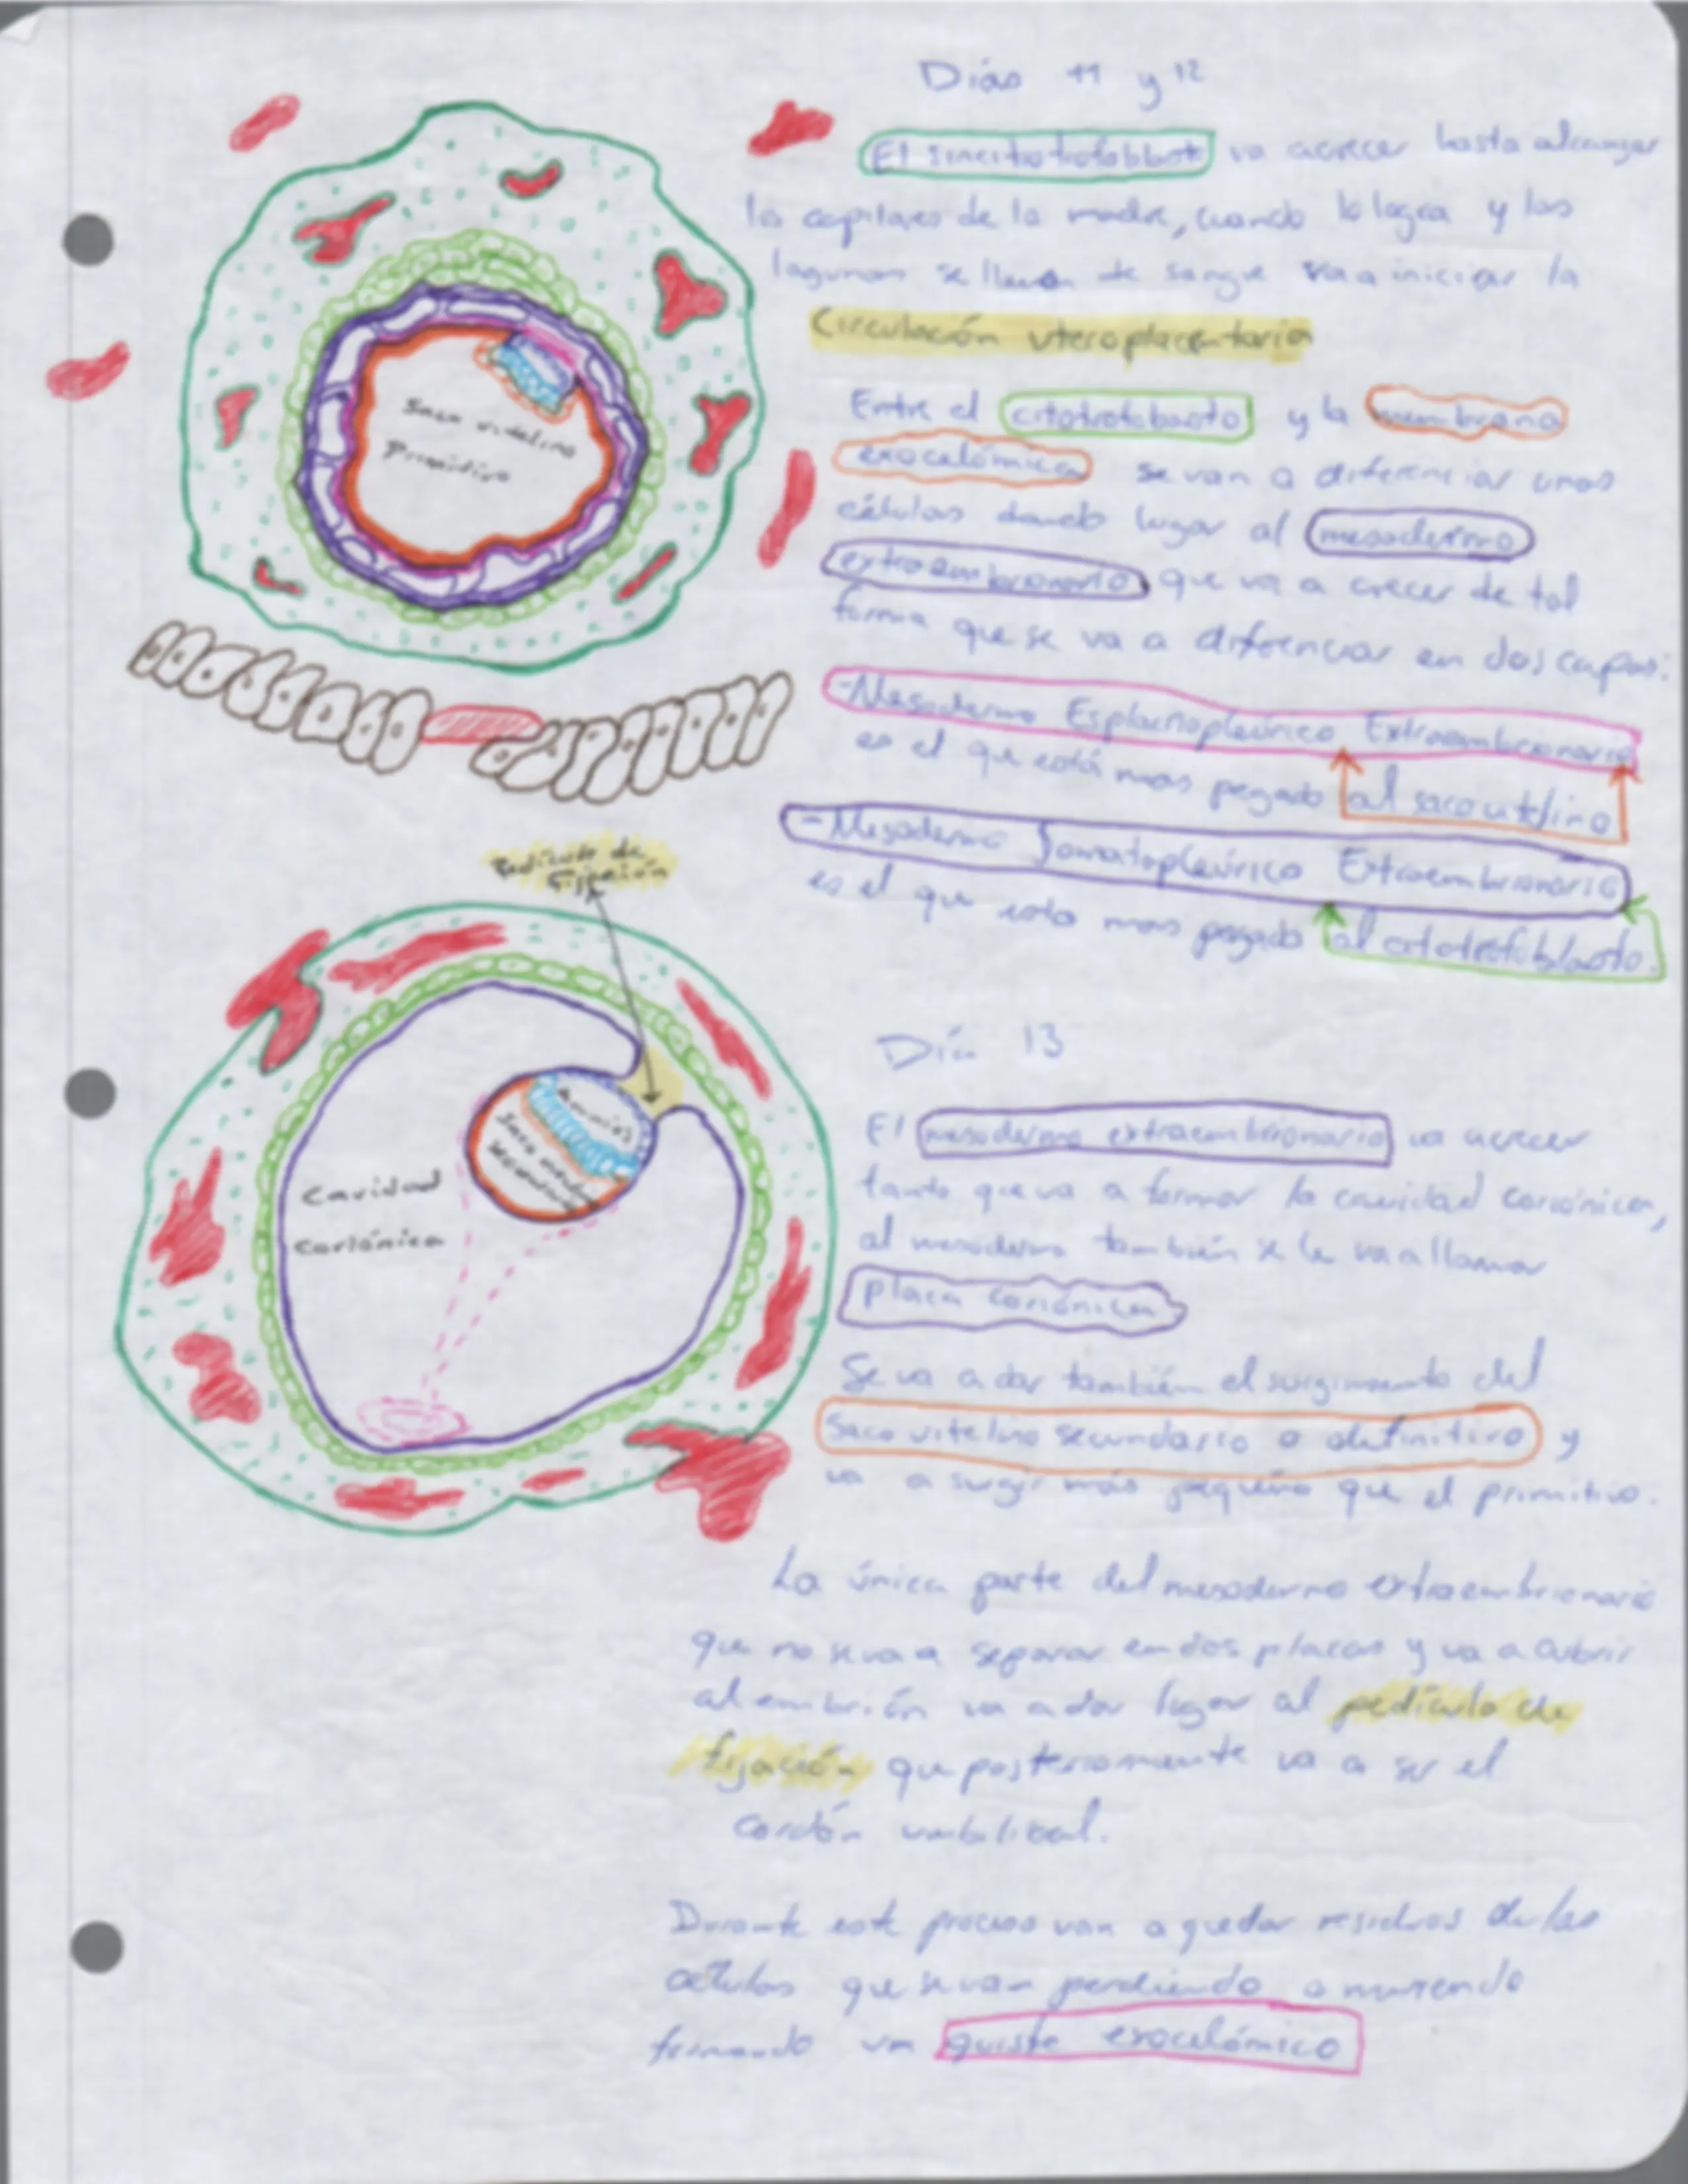 Días 11 y 12
El sincitiotrofoblasto va a crecer hasta alcanzar
los capilares de la madre, cuando lo logra y las
lagunas se llenan de sangre va a iniciar la
Circulación uteroplacentaria
Entre el citotrofobasto y la membrana
exocelómica se van a diferenciar unas
células dando lugar al mesodermo
extraembrionario que va a crecer de tal
forma que se va a diferenciar en dos capas:
-Mesodermo Esplacnopleúrico Extraembrionario
es el que está mas pegado al saco vitelino
-Mesodermo Somatopleúrico Extraembrionario
es el que esta mas pegado al citotrofoblasto.
Saco vitelino
Primitivo
Pedículo de
Fijación
Amnios
Saco vitelino
secundario
Cavidad
coriónica
Día 13
El mesodermo extraembrionario va a crecer
tanto que va a formar la cavidad coriónica,
al mesodermo también se le va a llamar
placa coriónica
Se va a dar también el surgimiento del
saco vitelino secundario o definitivo y
va a surgir más pequeño que el primitivo.
La única parte del mesodermo extraembrionario
que no se va a separar en dos placas y va a cubrir
al embrión va a dar lugar al pedículo de
fijación que posteriormente va a ser el
cordón umbilical.
Durante este proceso van a quedar residuos de las
células que se van perdiendo o muriendo
formando un quiste exocelómico